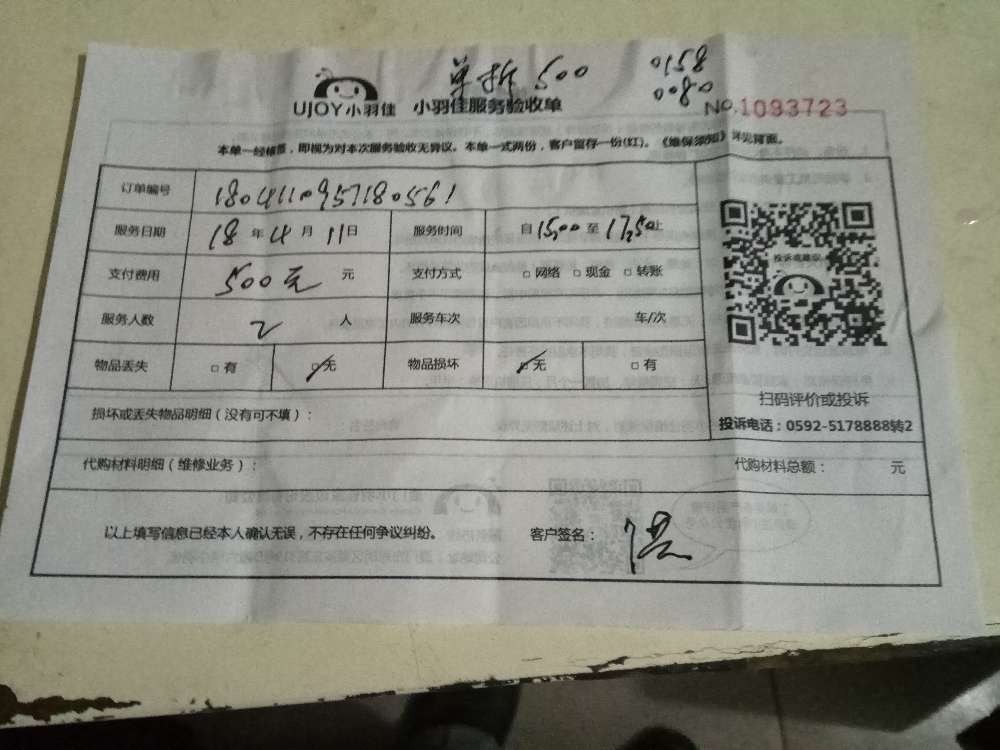 单拆 500 8510
0800
UJOY小羽佳 小羽佳服务验收单 NO.1093723
本单一经修ment，即视为对本次服务验收无异议。本单一式两份，客户留存一份(红)。《维保须知》详见背面。
订单编号
服务日期 18 年 4 月 11 日 服务时间 自 15:00 至 17:50 止
支付费用 500元 元 支付方式 □ 网络 □ 现金 □ 转账
服务人数 2 人 服务车次 车/次
物品丢失 □ 有 □ 无 物品损坏 □ 无 □ 有
投诉或建议
扫码评价或投诉
投诉电话：0592-5178888转2
损坏或丢失物品明细（没有可不填）：
代购材料明细（维修业务）： 代购材料总额： 元
以上填写信息已经本人确认无误，不存在任何争议纠纷。 客户签名：